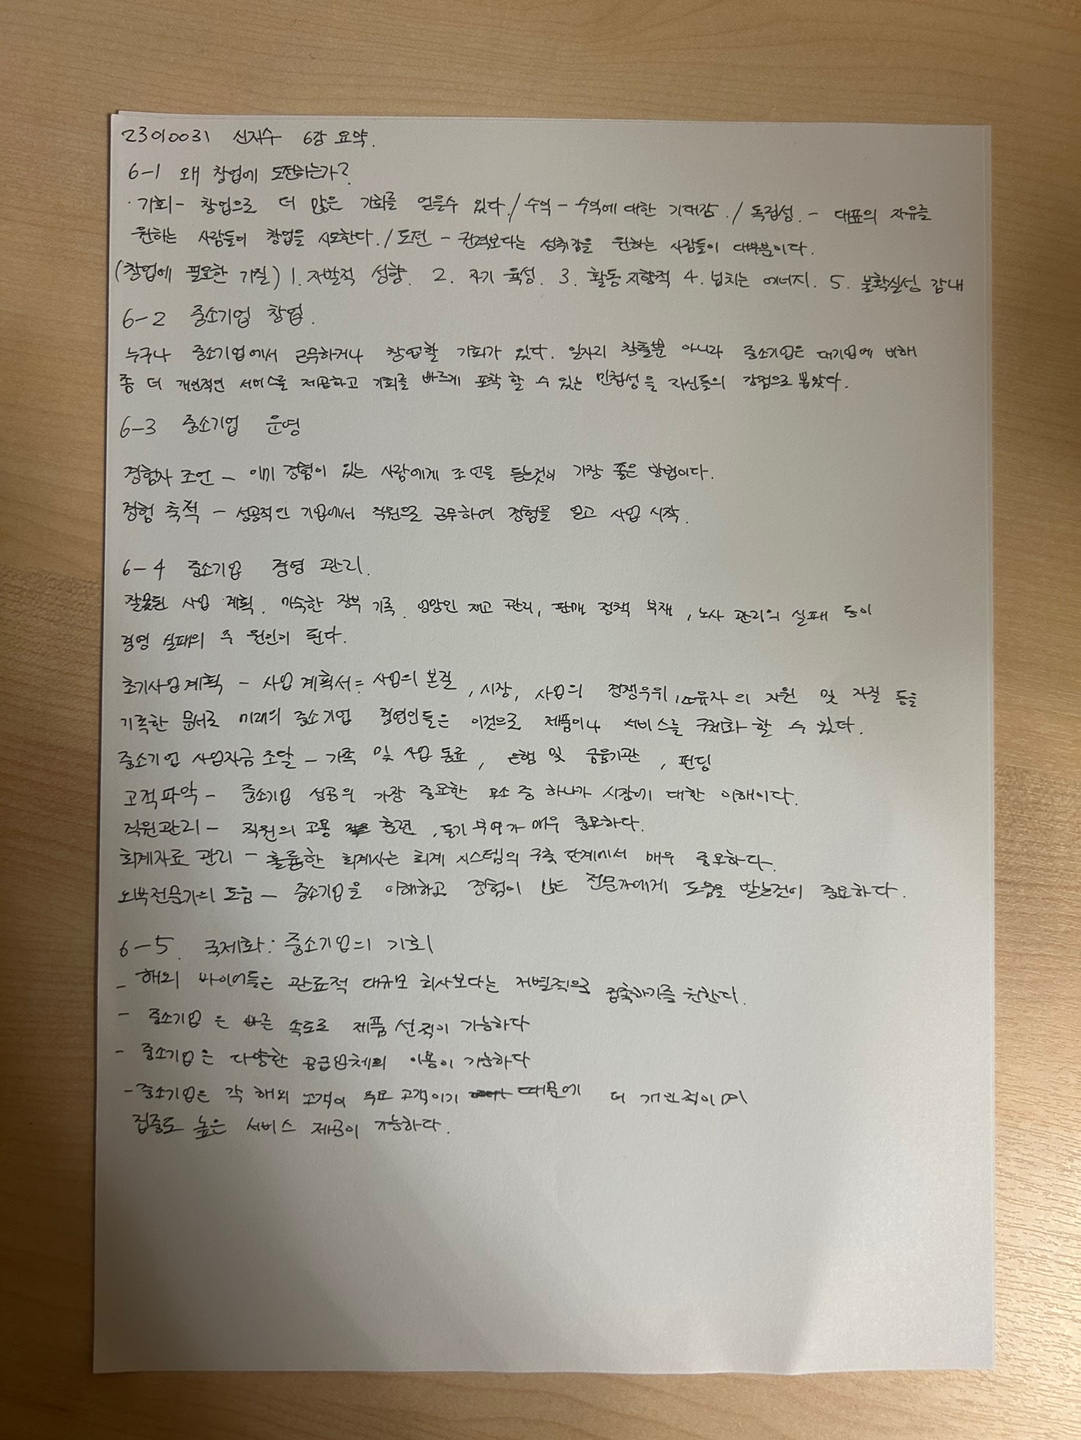 23010031 신지수 6강 요약.
6-1 왜 창업에 도전하는가?
· 기회 - 창업으로 더 많은 기회를 얻을수 있다. / 수익 - 수익에 대한 기대감. / 독립성. - 대표의 자유를
원하는 사람들이 창업을 시도한다. / 도전 - 보다는 성취감을 원하는 사람들이 대부분이다.
(창업에 필요한 기질) 1. 자발적 성향. 2. 자기 육성. 3. 활동 지향적 4. 넘치는 에너지. 5. 불확실성 감내
6-2 중소기업 창업.
누구나 중소기업에서 근무하거나 창업할 기회가 있다. 일자리 창출뿐 아니라 중소기업은 대기업에 비해
좀 더 개인적인 서비스를 제공하고 기회를 빠르게 포착 할 수 있는 민첩성을 자신들의 강점으로 뽑았다.
6-3 중소기업 운영
경험자 조언 - 이미 경험이 있는 사람에게 조언을 듣는것이 가장 좋은 방법이다.
경험 축적 - 성공적인 기업에서 직원으로 근무하여 경험을 얻고 사업 시작.
6-4 중소기업 경영 관리.
잘못된 사업 계획. 미숙한 장부 기록. 재고 관리, 판매 정책 부재, 노사 관리의 실패 등이
경영 실패의 주 원인이 된다.
초기사업계획 - 사업 계획서 = 사업의 본질, 시장, 사업의 경쟁우위, 소유자의 자원 및 자질 등을
기록한 문서로 미래의 중소기업 경영인들은 이것으로 제품이나 서비스를 구체화 할 수 있다.
중소기업 사업자금 조달 - 가족 및 사업 동료, 은행 및 금융기관, 펀딩
고객파악 - 중소기업 성공의 가장 중요한 요소 중 하나가 시장에 대한 이해이다.
직원관리 - 직원의 고용 훈련, 동기 부여가 매우 중요하다.
회계자료 관리 - 훌륭한 회계사는 회계 시스템의 구축 단계에서 매우 중요하다.
외부전문가의 도움 - 중소기업을 이해하고 경험이 많은 전문가에게 도움을 받는것이 중요하다.
6-5. 국제화: 중소기업의 기회
- 해외 바이어들은 관료적 대규모 회사보다는 개별적으로 접촉하기를 원한다.
- 중소기업은 빠른 속도로 제품 선적이 가능하다
- 중소기업은 다양한 공급업체의 이용이 가능하다
- 중소기업은 각 해외 고객이 주요 고객이기 때문에 더 개인적이며
집중도 높은 서비스 제공이 가능하다.